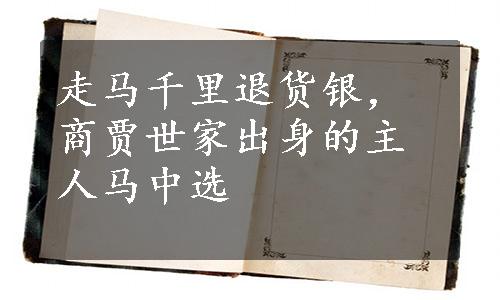 走马千里退货银，
商贾世家出身的主
人马中选